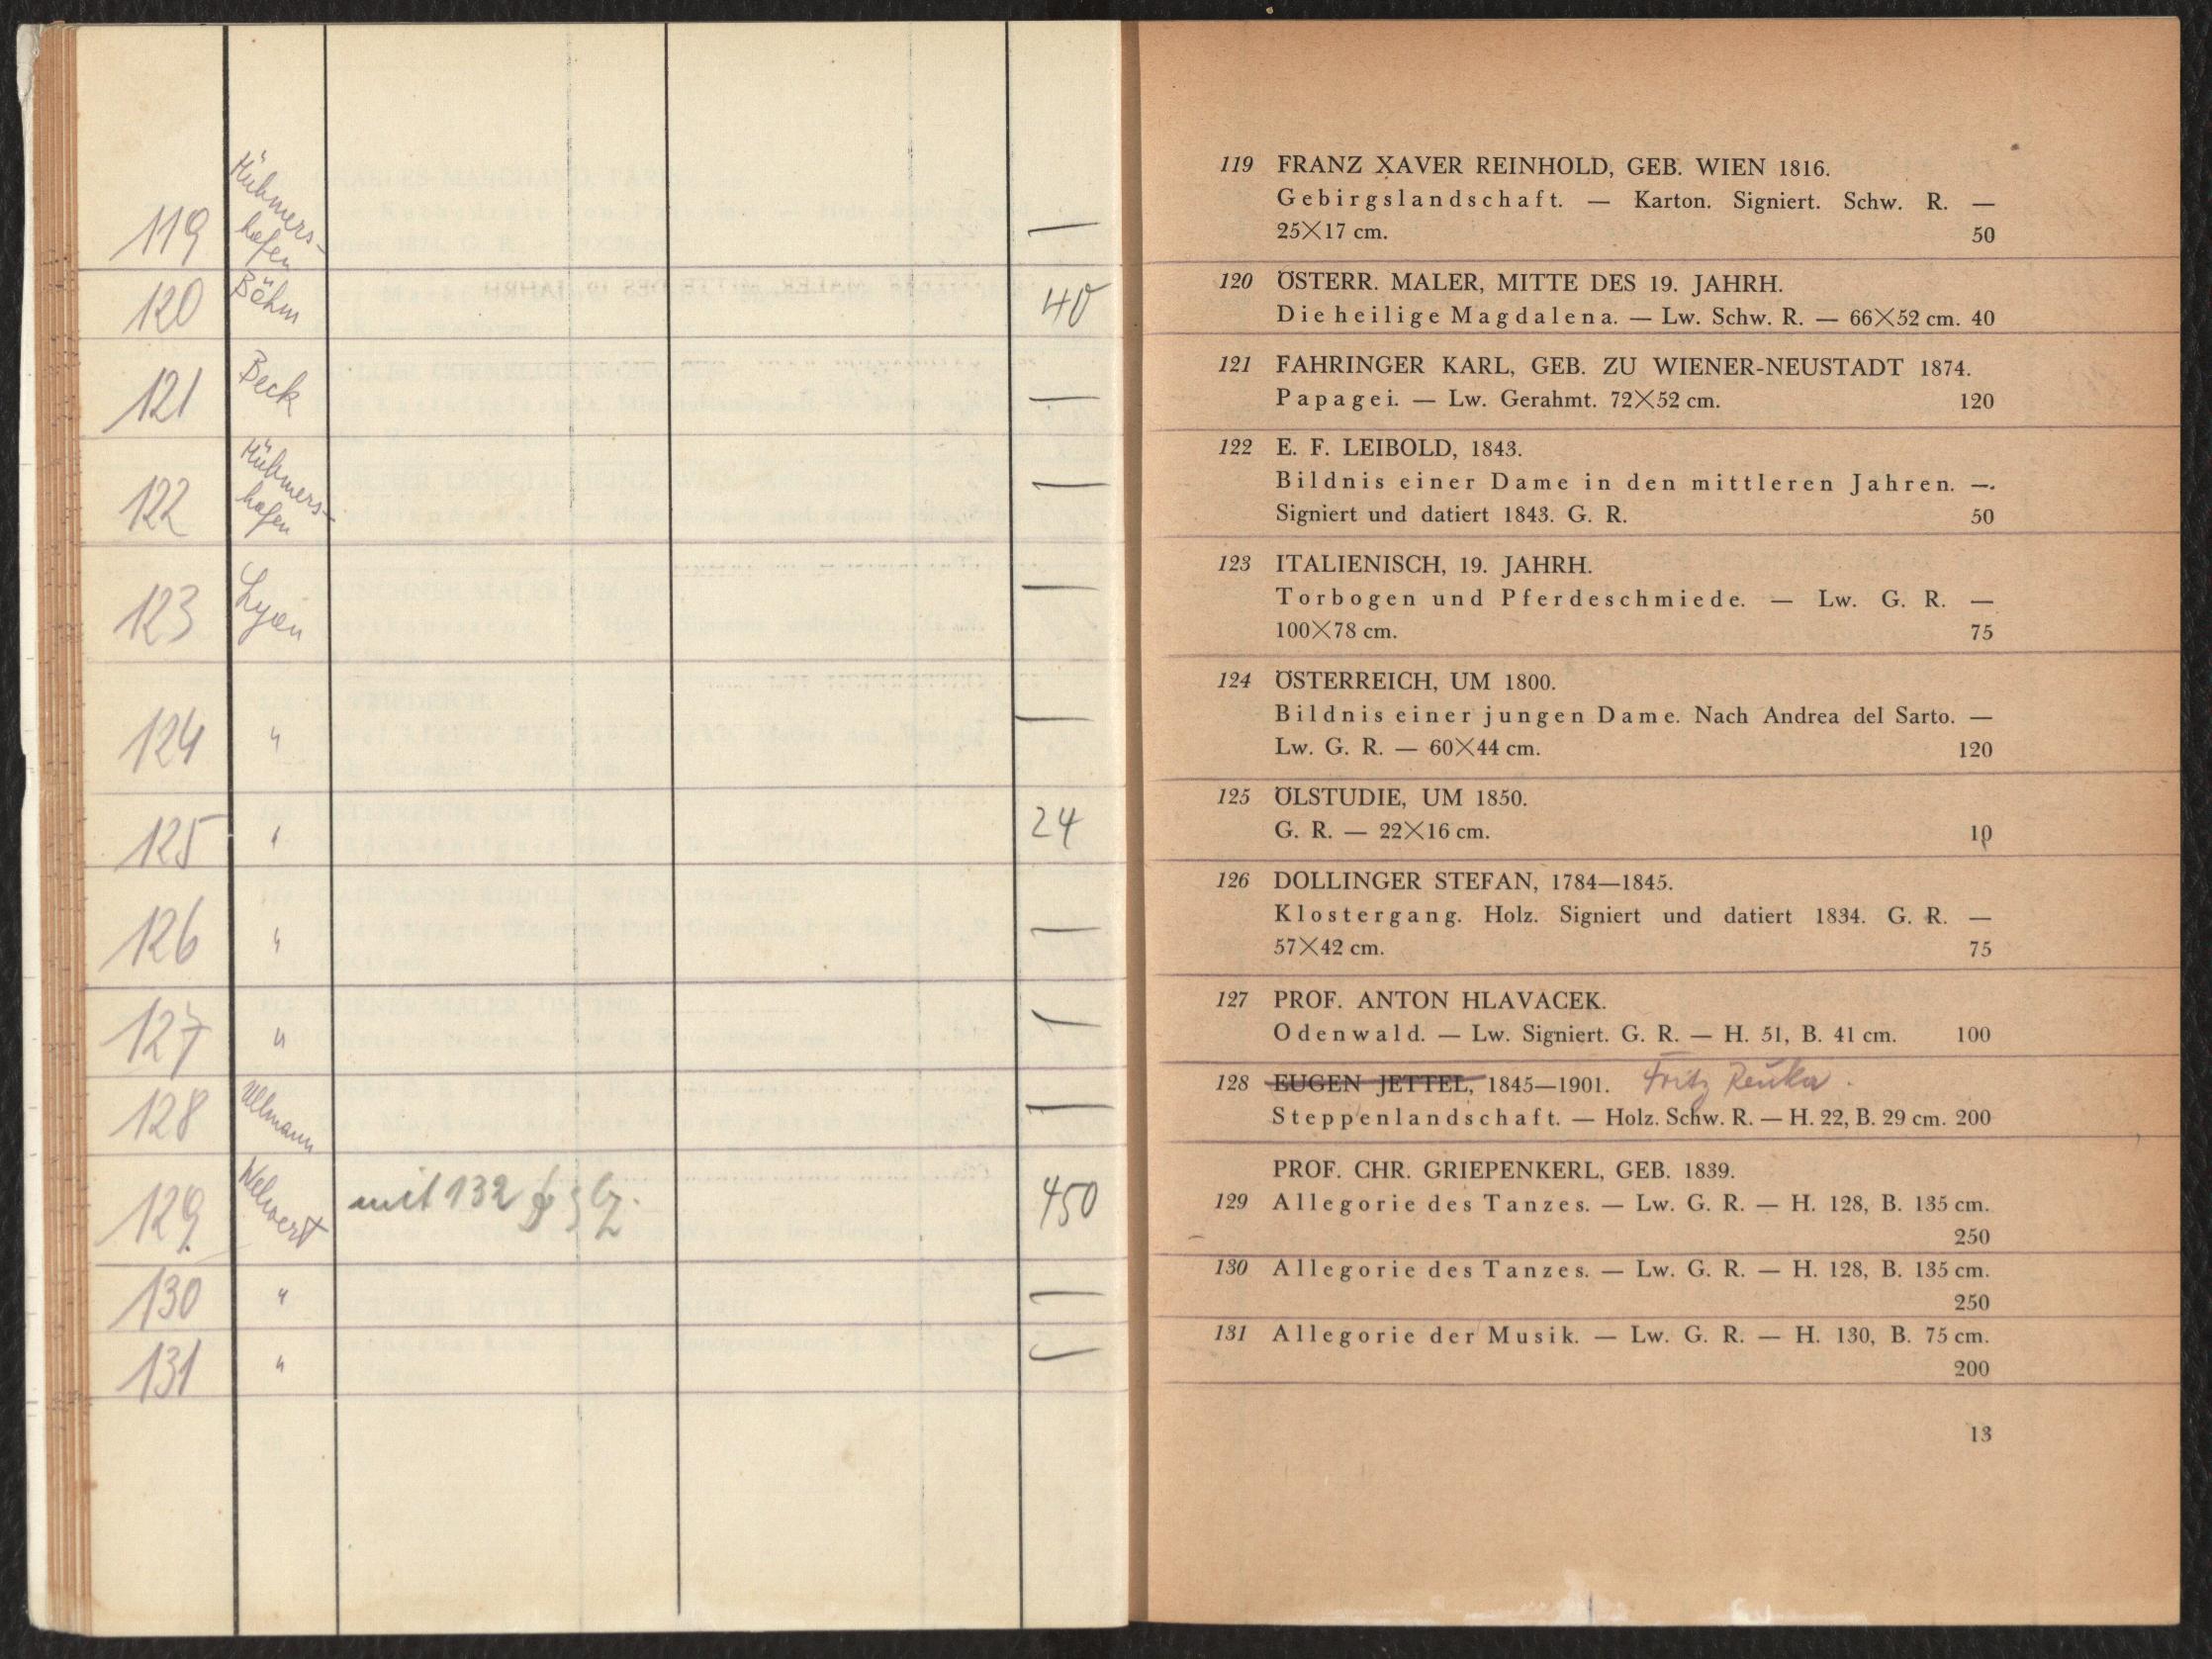 119 Hühmers-
hofen —
120 Böhm 40
121 Beck —
122 Hühmers-
hofen —
123 Lyon —
124 " —
125 " 24
126 " —
127 " —
128 Ullmann —
129 Welwert mit 132 450
130 " —
131 " —
119 FRANZ XAVER REINHOLD, GEB. WIEN 1816.
Gebirgslandschaft. — Karton. Signiert. Schw. R. —
25×17 cm. 50
120 ÖSTERR. MALER, MITTE DES 19. JAHRH.
Die heilige Magdalena. — Lw. Schw. R. — 66×52 cm. 40
121 FAHRINGER KARL, GEB. ZU WIENER-NEUSTADT 1874.
Papagei. — Lw. Gerahmt. 72×52 cm. 120
122 E. F. LEIBOLD, 1843.
Bildnis einer Dame in den mittleren Jahren. —.
Signiert und datiert 1843. G. R. 50
123 ITALIENISCH, 19. JAHRH.
Torbogen und Pferdeschmiede. — Lw. G. R. —
100×78 cm. 75
124 ÖSTERREICH, UM 1800.
Bildnis einer jungen Dame. Nach Andrea del Sarto. —
Lw. G. R. — 60×44 cm. 120
125 ÖLSTUDIE, UM 1850.
G. R. — 22×16 cm. 10
126 DOLLINGER STEFAN, 1784—1845.
Klostergang. Holz. Signiert und datiert 1834. G. R. —
57×42 cm. 75
127 PROF. ANTON HLAVACEK.
Odenwald. — Lw. Signiert. G. R. — H. 51, B. 41 cm. 100
128 EUGEN JETTEL, 1845—1901. Fritz Renka.
Steppenlandschaft. — Holz. Schw. R. — H. 22, B. 29 cm. 200
PROF. CHR. GRIEPENKERL, GEB. 1839.
129 Allegorie des Tanzes. — Lw. G. R. — H. 128, B. 135 cm.
250
130 Allegorie des Tanzes. — Lw. G. R. — H. 128, B. 135 cm.
250
131 Allegorie der Musik. — Lw. G. R. — H. 130, B. 75 cm.
200
13